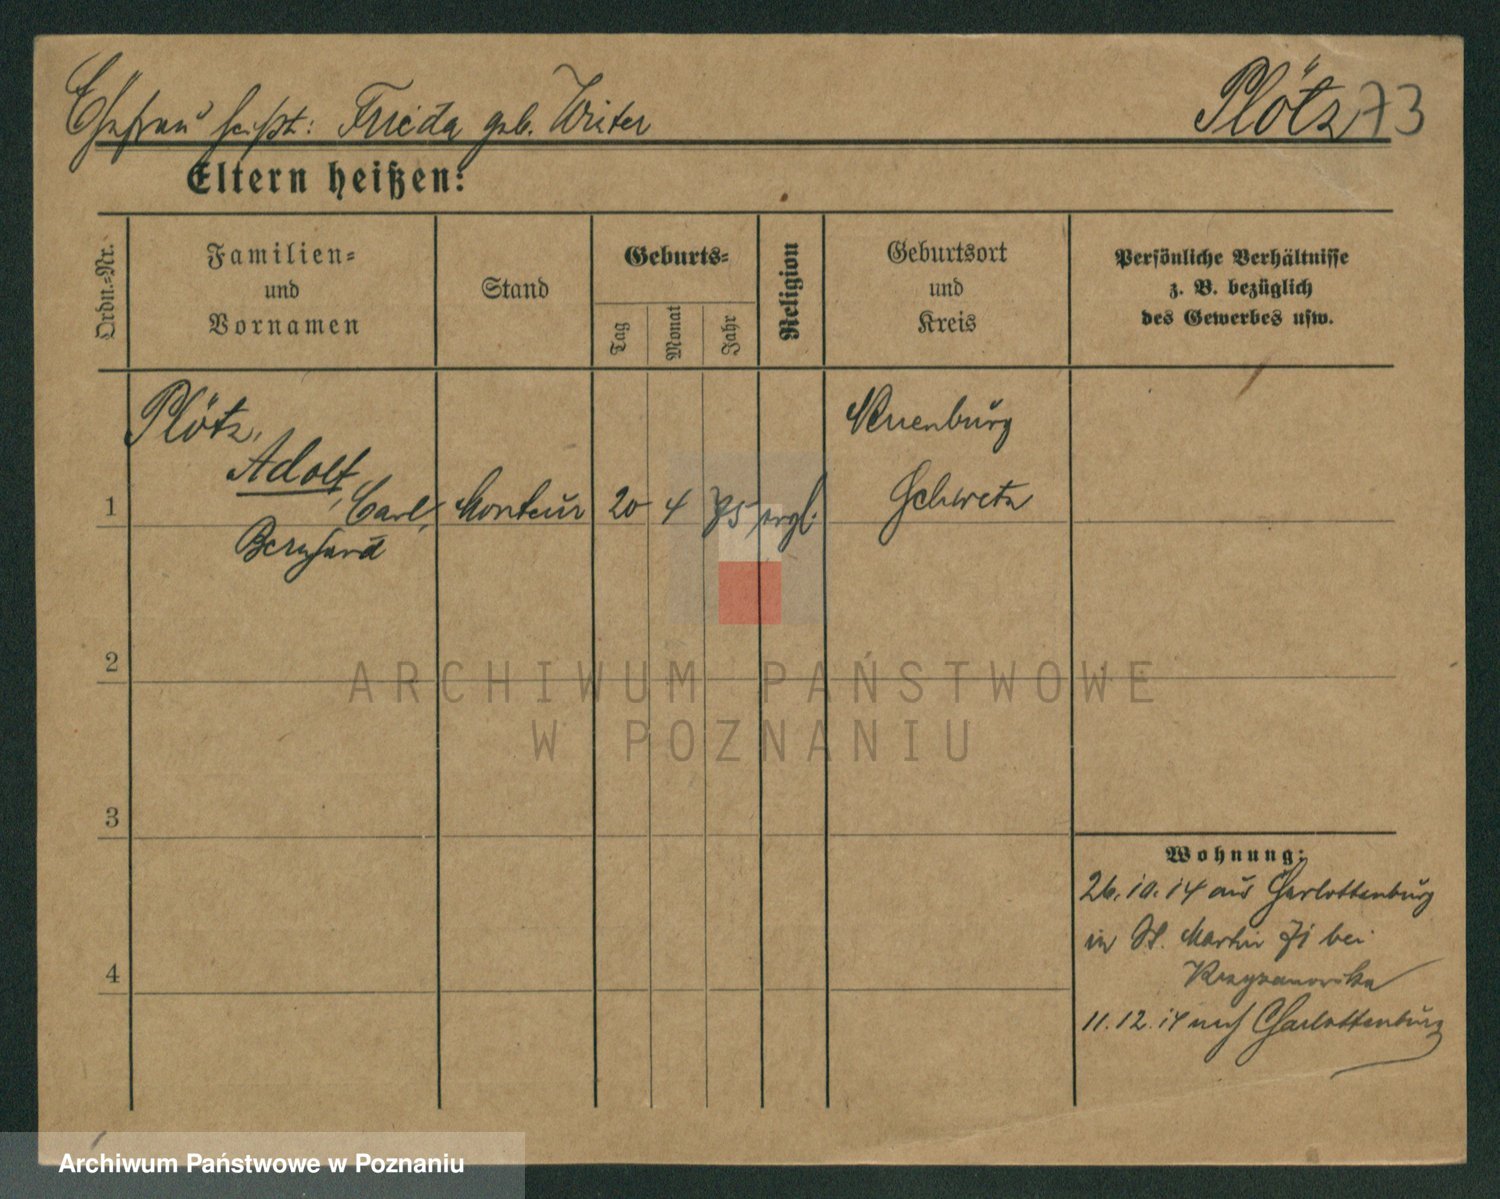 Ehefrau heißt: Frieda geb. Writer
Plötz 73
Eltern heißen:
Ordn.-Nr.
Familien-
und
Vornamen
Stand
Geburts-
Tag
Monat
Jahr
Religion
Geburtsort
und
Kreis
Persönliche Verhältnisse
z. B. bezüglich
des Gewerbes usw.
1
Plötz,
Adolf,
Carl,
Bernhard
Monteur
20
4
75
evgl.
Neuenburg
Schwetz
2
3
4
ARCHIWUM PAŃSTWOWE
W POZNANIU
Wohnung:
26.10.14 aus Charlottenburg
in St. Martin 71 bei
Krzyzanowska
11.12.14 nach Charlottenburg
Archiwum Państwowe w Poznaniu